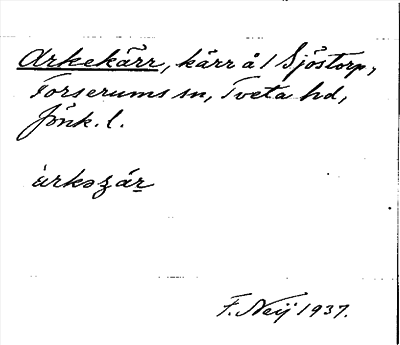 Arkekärr, kärr å 1 Sjöstorp,
Forserums sn, Tveta hd,
Jönk. l.
F. Neij 1937.